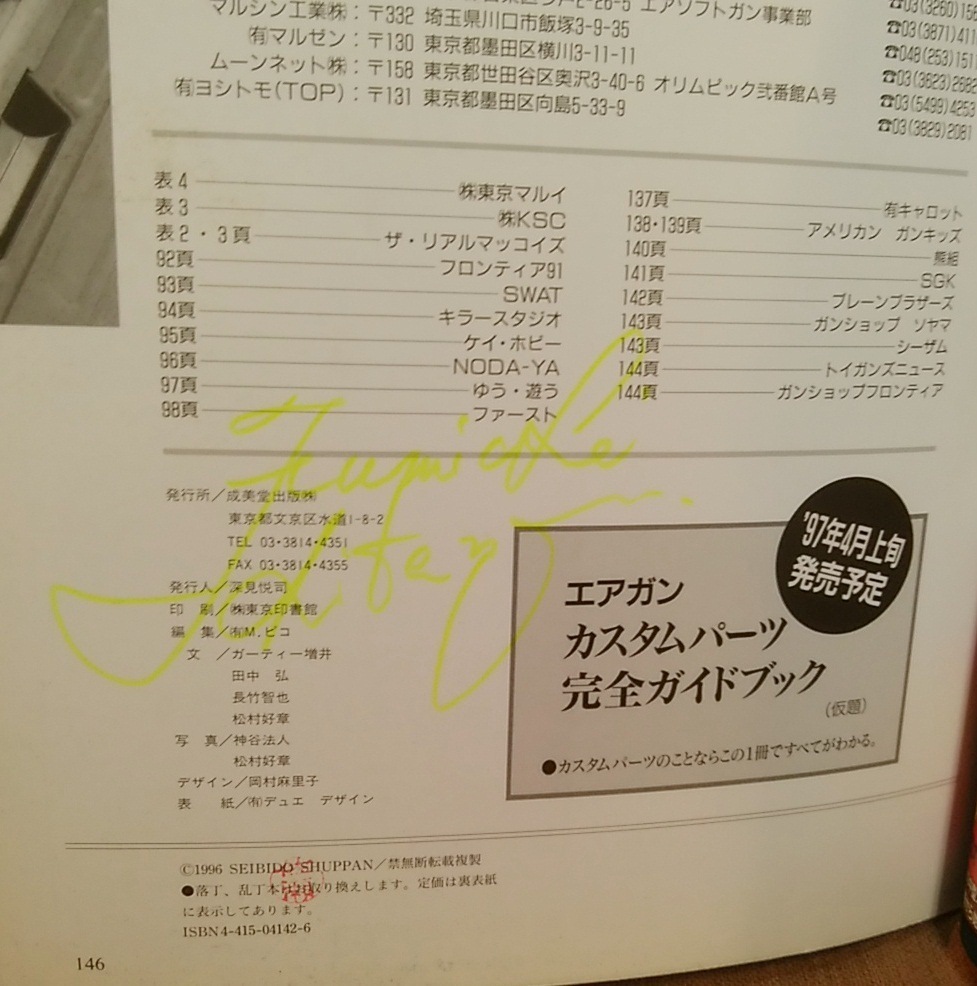 エアソフトガン事業部
マルシン工業㈱：〒332 埼玉県川口市飯塚3-9-35
㈲マルゼン：〒130 東京都墨田区横川3-11-11
ムーンネット㈱：〒158 東京都世田谷区奥沢3-40-6 オリムピック弐番館A号
㈲ヨシトモ(TOP)：〒131 東京都墨田区向島5-33-9
☎03(3260)156
☎03(3871)411
☎048(253)1511
☎03(3623)2682
☎03(5499)4253
☎03(3829)2081
表4 ㈱東京マルイ
表3 ㈱KSC
表2・3頁 ザ・リアルマッコイズ
92頁 フロンティア91
93頁 SWAT
94頁 キラースタジオ
95頁 ケイ・ホビー
96頁 NODA-YA
97頁 ゆう・遊う
98頁 ファースト
137頁 ㈲キャロット
138・139頁 アメリカン ガンキッズ
140頁 熊組
141頁 SGK
142頁 ブレーンブラザーズ
143頁 ガンショップ ソヤマ
143頁 シーザム
144頁 トイガンズニュース
144頁 ガンショップフロンティア
発行所／成美堂出版㈱
東京都文京区水道1-8-2
TEL 03・3814・4351
FAX 03・3814・4355
発行人／深見悦司
印 刷／㈱東京印書館
編 集／㈲M.ピコ
文 ／ガーティー増井
田中 弘
長竹智也
松村好章
写 真／神谷法人
松村好章
デザイン／岡村麻里子
表 紙／㈲デュエ デザイン
'97年4月上旬
発売予定
エアガン
カスタムパーツ
完全ガイドブック
(仮題)
●カスタムパーツのことならこの1冊ですべてがわかる。
©1996 SEIBIDO SHUPPAN／禁無断転載複製
●落丁、乱丁本はお取り換えします。定価は裏表紙
に表示してあります。
ISBN4-415-04142-6
146